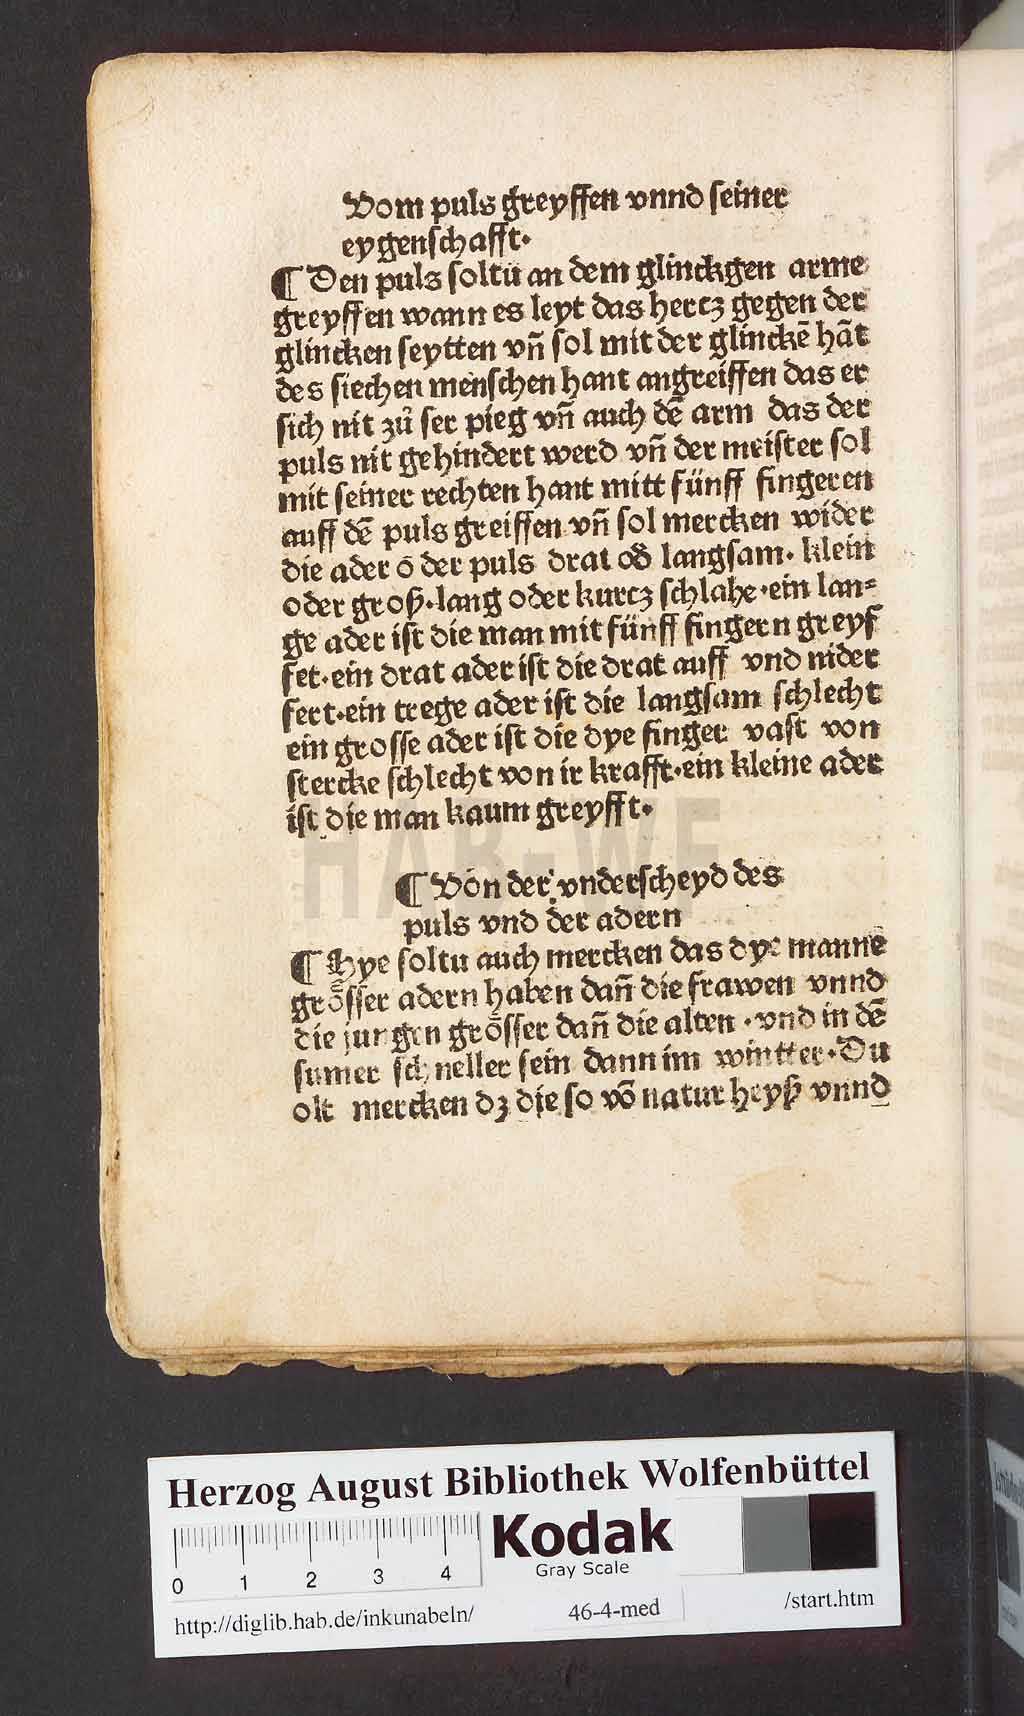 Vom puls greyffen vnnd seiner
eygenschafft.
¶ Den puls soltu an dem glinckgen arme
greyffen wann es leyt das hertz gegen der
glincken seytten vñ sol mit der glinckē hāt
des siechen menschen hant angreiffen das er
sich nit zů ser pieg vñ auch dē arm das der
puls nit gehindert werd vñ der meister sol
mit seiner rechten hant mitt fünff fingeren
auff dē puls greiffen vñ sol mercken wider
die ader ō der puls drat od̄ langsam. klein
oder groß.lang oder kurtz schlahe.ein lan=
ge ader ist die man mit fünff fingern greyf
fet.ein drat ader ist die drat auff vnd nider
fert.ein trege ader ist die langsam schlecht
ein grosse ader ist die dye finger vast von
stercke schlecht von ir krafft.ein kleine ader
ist die man kaum greyfft.
HAB-WF
¶ Von der vnderscheyd des
puls vnd der adern
¶ Hye soltu auch mercken das dye manne
grösser adern haben dañ die frawen vnnd
die jungen grösser dañ die alten . vnd in dē
sumer schneller sein dann im wintter. Du
olt mercken dz die so vō natur heyß vnnd
Herzog August Bibliothek Wolfenbüttel
Kodak
Gray Scale
0 1 2 3 4
http://diglib.hab.de/inkunabeln/ 46-4-med /start.htm